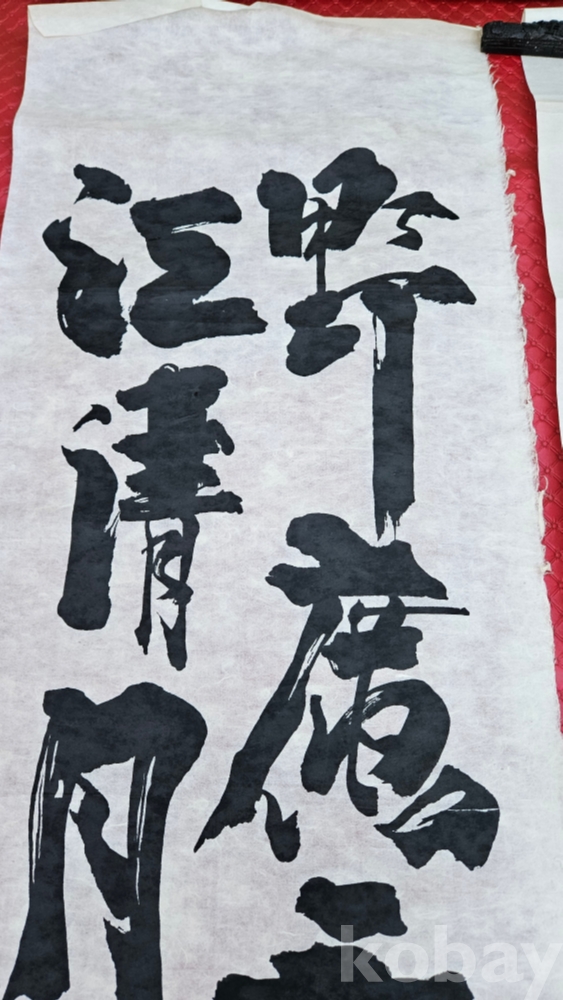 野曠
江清月
kobay